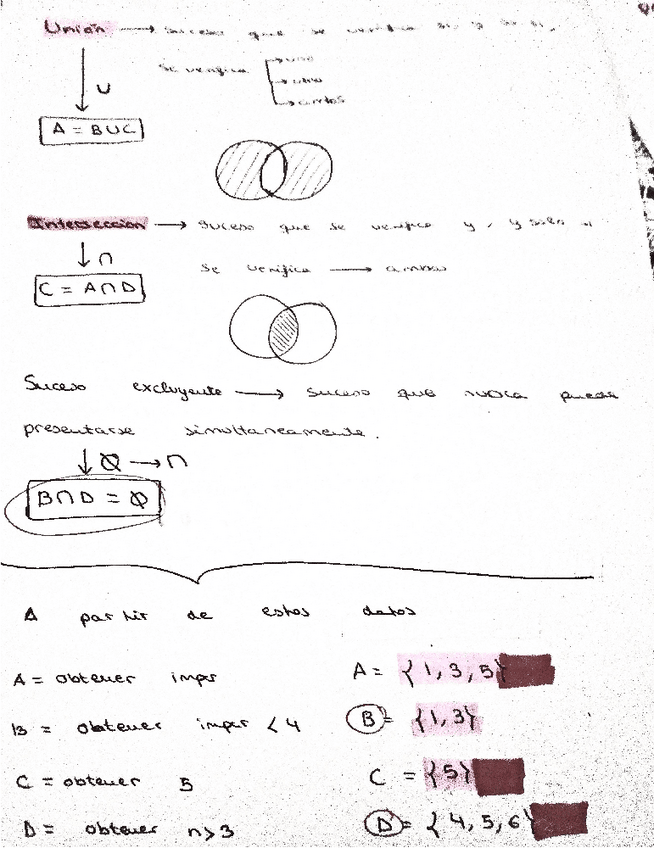 Unión → suceso que se verifica si, y solo si,
∪ se verifica → uno
→ otro
→ ambos
A = B∪C
Intersección → suceso que se verifica y, y solo si
∩
se verifica → ambos
C = A∩D
Suceso excluyente → suceso que nunca puede
presentarse simultaneamente.
∅ → ∩
B∩D = ∅
A partir de estos datos
A = obtener impar A = {1, 3, 5}
B = obtener impar < 4 B = {1, 3}
C = obtener 5 C = {5}
D = obtener n>3 D = {4, 5, 6}